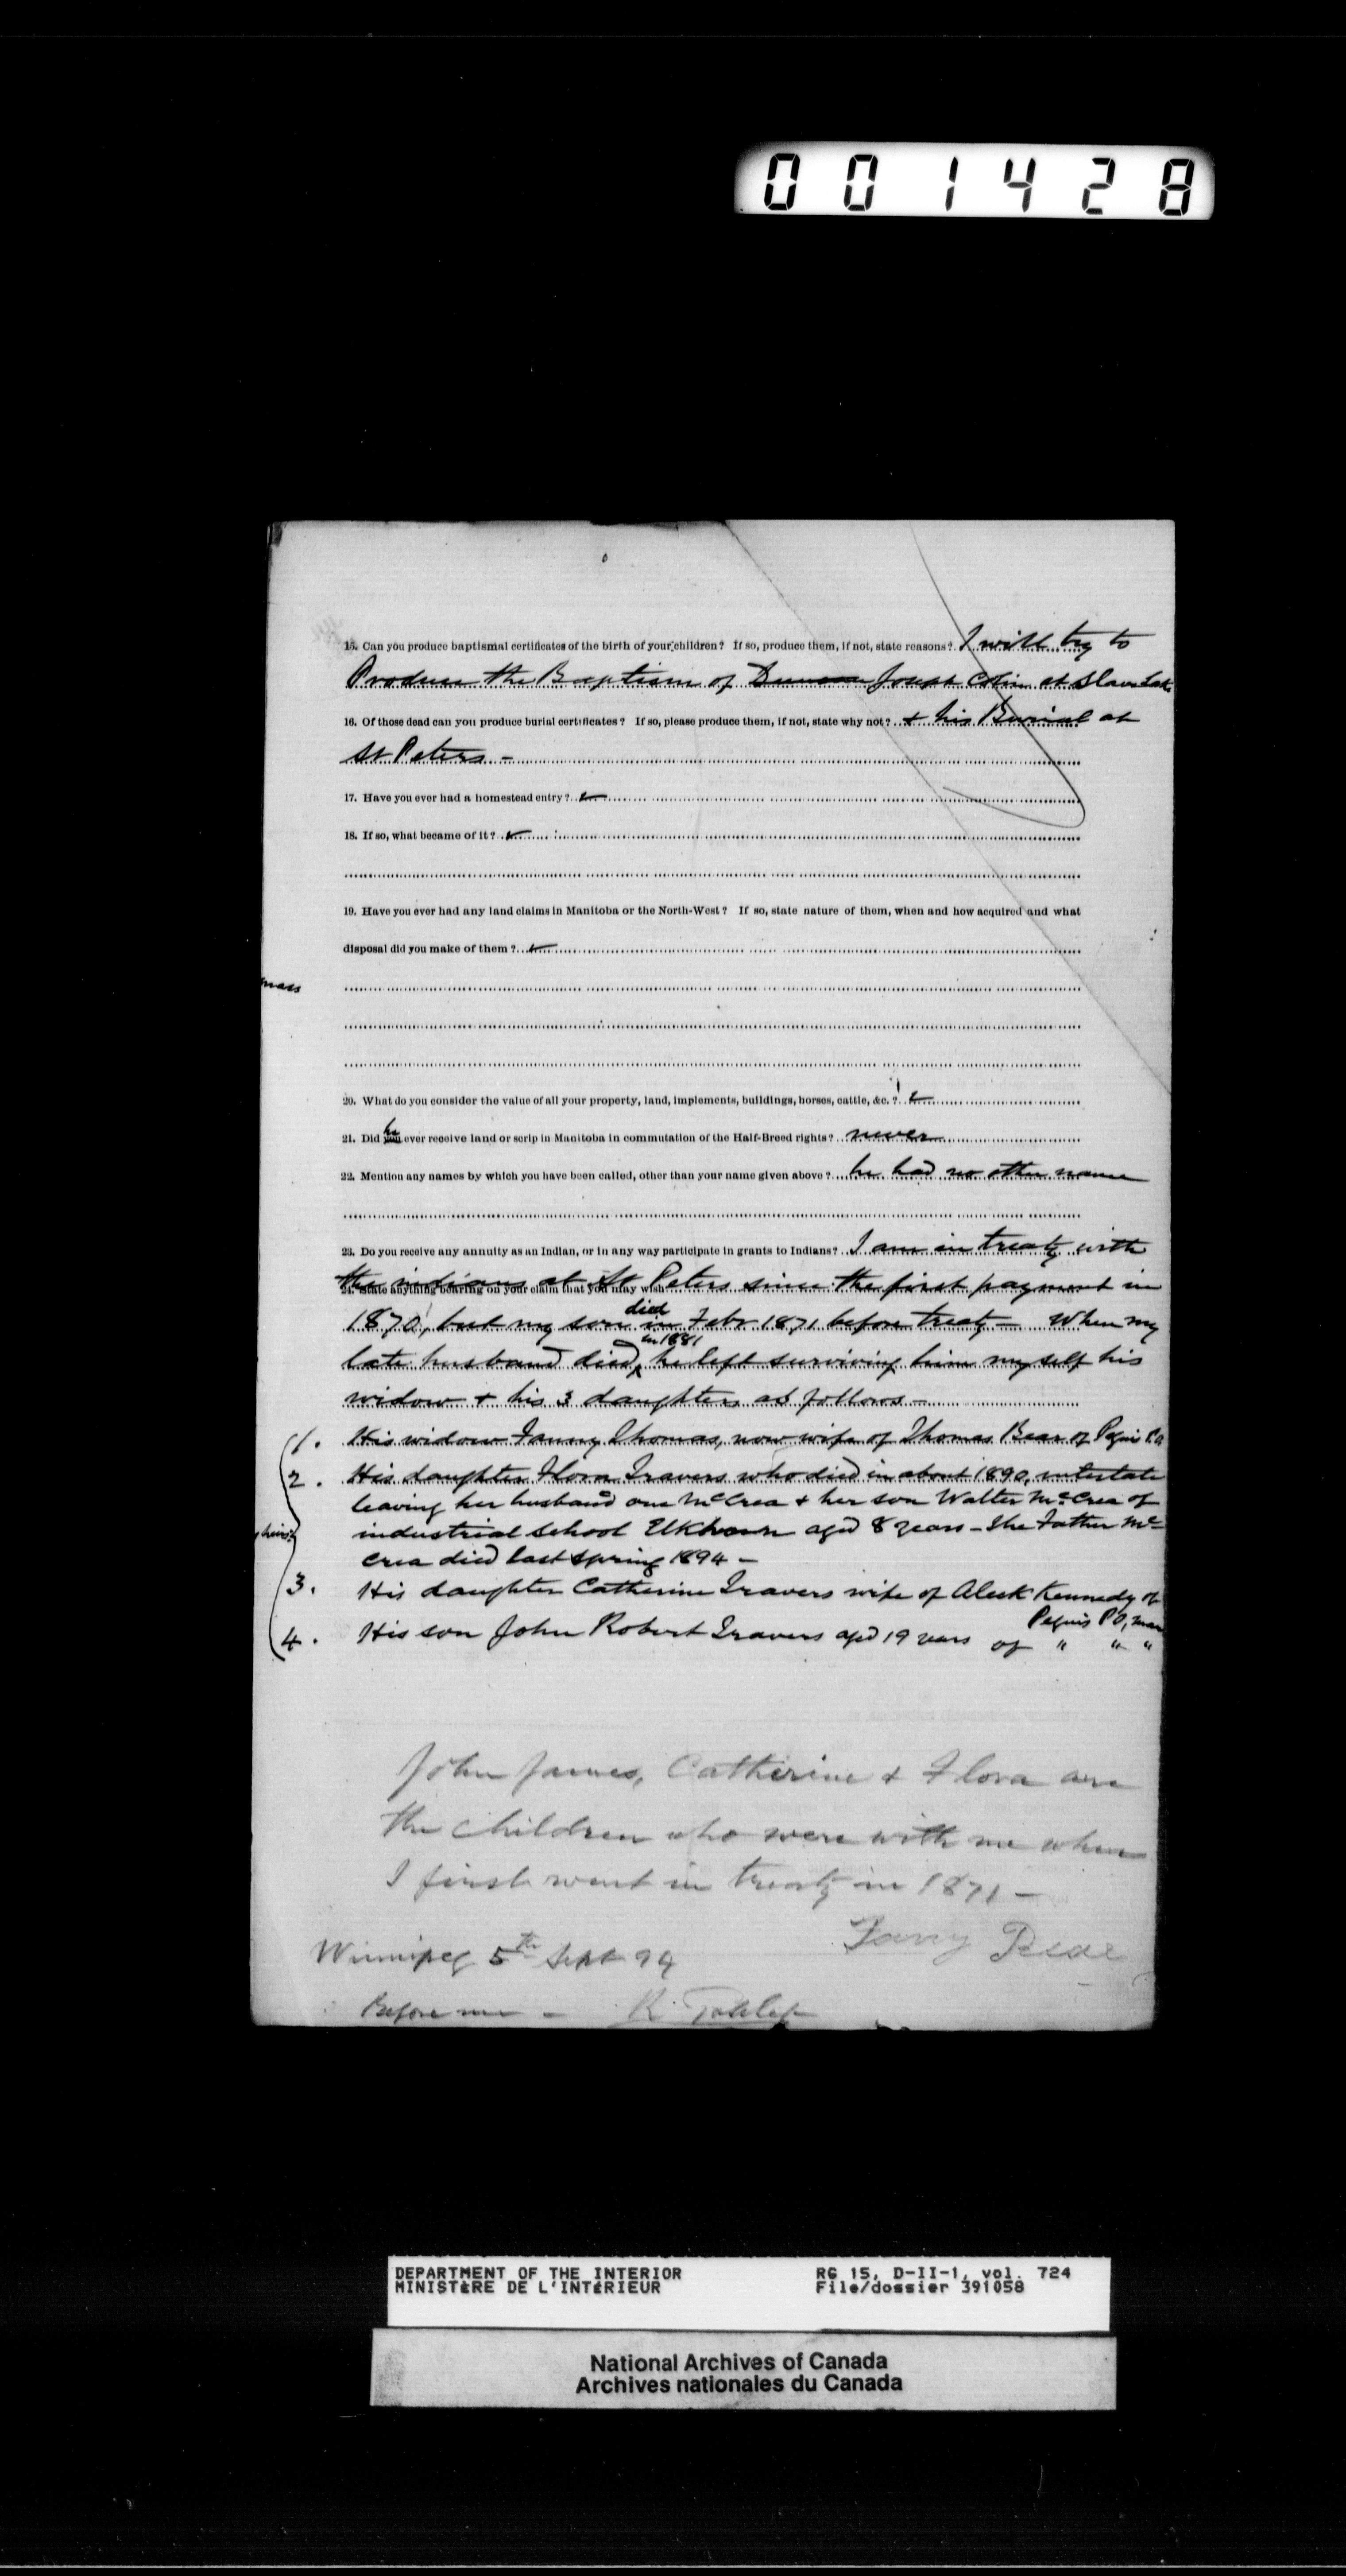 001428
15. Can you produce baptismal certificates of the birth of your children? If so, produce them, if not, state reasons? I will try to
Produce the Baptism of Duncan Joseph Colin at Slave Lake
16. Of those dead can you produce burial certificates? If so, please produce them, if not, state why not? & his Burial at
St Peters -
17. Have you ever had a homestead entry?
18. If so, what became of it?
19. Have you ever had any land claims in Manitoba or the North-West? If so, state nature of them, when and how acquired and what
disposal did you make of them?
20. What do you consider the value of all your property, land, implements, buildings, horses, cattle, &c.?
21. Did you he ever receive land or scrip in Manitoba in commutation of the Half-Breed rights? never
22. Mention any names by which you have been called, other than your name given above? he had no other name
23. Do you receive any annuity as an Indian, or in any way participate in grants to Indians? I am in treaty with
the indians at St Peters since the first payment in
24. State anything bearing on your claim that you may wish
1870, but my son died in Febr 1871 before treaty - When my
late husband died in 1881 he left surviving him myself his
widow & his 3 daughters as follows -
1. His widow Fanny Thomas, now wife of Thomas Bear of Peguis P.O
2. His daughter Flora Travers who died in about 1890, intestate
leaving her husband one McCrea & her son Walter McCrea of
industrial school Elkhorn aged 8 years - The Father Mc-
Crea died last spring 1894 -
3. His daughter Catherine Travers wife of Aleck Kennedy of
Peguis PO, Man
4. His son John Robert Travers aged 19 years of " " "
John James, Catherine & Flora are
the children who were with me when
I first went in treaty in 1871 -
Fanny Bear
Winnipeg 5th Sept 94
Before me - R.
DEPARTMENT OF THE INTERIOR
MINISTÈRE DE L'INTÉRIEUR
RG 15, D-II-1, vol. 724
File/dossier 391058
National Archives of Canada
Archives nationales du Canada